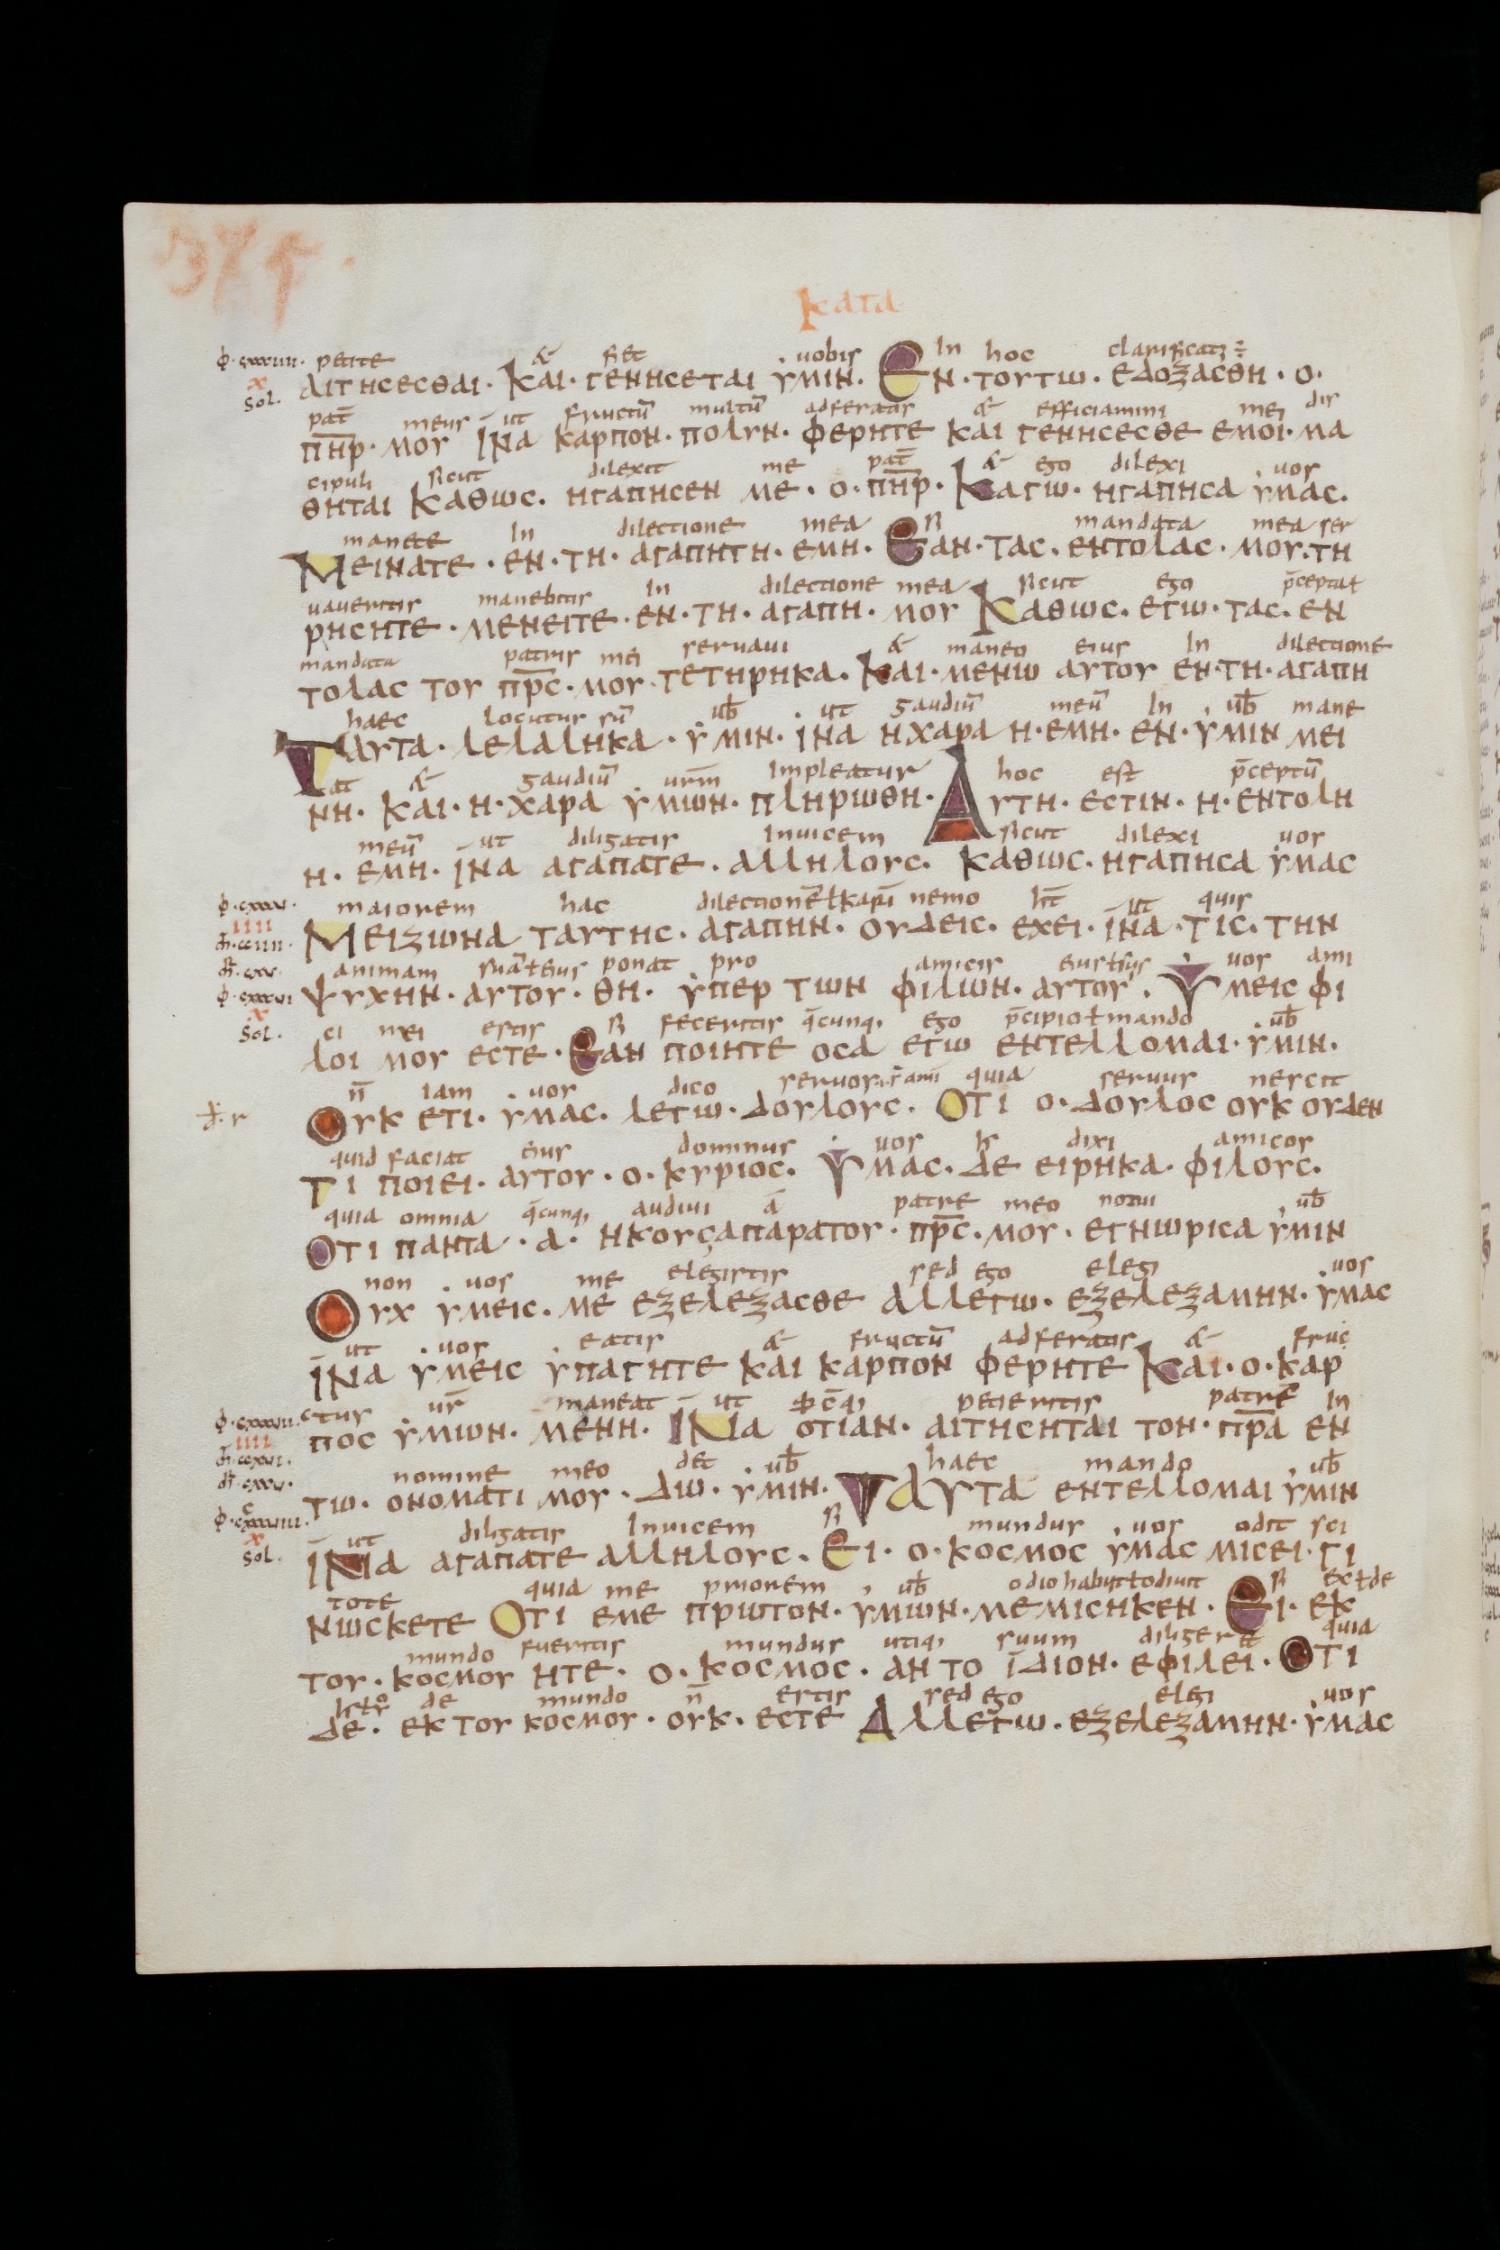 375.
κατα
petite & fiet uobis In hoc clarificat
ΑΙΤΗCΕCΘΑΙ· ΚΑΙ· ΓΕΝΗCΕΤΑΙ ΥΜΙΝ. ΕΝ· ΤΟΥΤΩ· ΕΔΟΞΑCΘΗ· Ο·
sol.
pat̄ meus ut fructū multū adferatis & efficiamini mei dis
Π̅Η̅Ρ̅· ΜΟΥ ΙΝΑ ΚΑΡΠΟΝ· ΠΟΛΥΝ· ΦΕΡΗΤΕ ΚΑΙ ΓΕΝΗCΕCΘΕ ΕΜΟΙ· ΜΑ
cipuli sicut dilexit me pat̄ & ego dilexi uos
ΘΗΤΑΙ ΚΑΘΩC. ΗΓΑΠΗCΕΝ ΜΕ· Ο· Π̅Η̅Ρ̅· ΚΑΓΩ· ΗΓΑΠΗCΑ ΥΜΑC.
manete In dilectione mea si mandata mea ser
ΜΕΙΝΑΤΕ· ΕΝ· ΤΗ· ΑΓΑΠΗΤΗ· ΕΜΗ· ΕΑΝ· ΤΑC· ΕΝΤΟΛΑC· ΜΟΥ· ΤΗ
uaueritis manebitis In dilectione mea sicut ego
ΡΗCΗΤΕ· ΜΕΝΕΙΤΕ· ΕΝ· ΤΗ· ΑΓΑΠΗ· ΜΟΥ ΚΑΘΩC. ΕΓΩ· ΤΑC· ΕΝ
mandata patris mei seruaui & maneo eius In dilectione
ΤΟΛΑC ΤΟΥ Π̅Ρ̅C̅· ΜΟΥ· ΤΕΤΗΡΗΚΑ· ΚΑΙ· ΜΕΝΩ ΑΥΤΟΥ ΕΝ· ΤΗ· ΑΓΑΠΗ
haec locutus sū ub̄ ut gaudiū meū In ub̄ mane
ΤΑΥΤΑ· ΛΕΛΑΛΗΚΑ· ΥΜΙΝ· ΙΝΑ ΗΧΑΡΑ Η· ΕΜΗ· ΕΝ· ΥΜΙΝ ΜΕΙ
at & gaudiū urm̄ Impleatur hoc est p̄ceptū
ΝΗ· ΚΑΙ· Η· ΧΑΡΑ ΥΜΩΝ· ΠΛΗΡΩΘΗ· ΑΥΤΗ· ΕCΤΙΝ· Η· ΕΝΤΟΛΗ
meū ut diligatis Inuicem sicut dilexi uos
Η· ΕΜΗ· ΙΝΑ ΑΓΑΠΑΤΕ· ΑΛΛΗΛΟΥC· ΚΑΘΩC· ΗΓΑΠΗCΑ ΥΜΑC
maiorem hac nemo quis
ΜΕΙΖΩΝΑ ΤΑΥΤΗC· ΑΓΑΠΗΝ· ΟΥΔΕΙC· ΕΧΕΙ· ΙΝΑ· ΤΙC· ΤΗΝ
animam ponat pro amicis uos ami
ΨΥΧΗΝ· ΑΥΤΟΥ· ΘΗ· ΥΠΕΡ ΤΩΝ ΦΙΛΩΝ· ΑΥΤΟΥ· ΥΜΕΙC ΦΙ
sol.
ci mei estis si feceritis q̄cunq; ego p̄cipio ł mando ub̄
ΛΟΙ ΜΟΥ ΕCΤΕ· ΕΑΝ ΠΟΙΗΤΕ ΟCΑ ΕΓΩ ΕΝΤΕΛΛΟΜΑΙ· ΥΜΙΝ·
n̄ iam uos dico quia seruus nescit
ΟΥΚ ΕΤΙ· ΥΜΑC· ΛΕΓΩ· ΔΟΥΛΟΥC· ΟΤΙ Ο· ΔΟΥΛΟC ΟΥΚ ΟΥΔΕΝ
quid faciat eius dominus uos dixi amicos
ΤΙ ΠΟΙΕΙ· ΑΥΤΟΥ· Ο· ΚΥΡΙΟC· ΥΜΑC· ΔΕ ΕΙΡΗΚΑ· ΦΙΛΟΥC·
quia omnia q̄cunq; audiui ā patre meo notui ub̄
ΟΤΙ ΠΑΝΤΑ· Α· ΗΚΟΥCΑΠΑΡΑΤΟΥ· Π̅Ρ̅C̅· ΜΟΥ· ΕΓΝΩΡΙCΑ ΥΜΙΝ
non uos me elegistis sed ego elegi uos
ΟΥΧ ΥΜΕΙC· ΜΕ ΕΞΕΛΕΞΑCΘΕ ΑΛΛΕΓΩ· ΕΞΕΛΕΞΑΜΗΝ· ΥΜΑC
ut uos eatis & fructū adferatis & fruc
ΙΝΑ ΥΜΕΙC ΥΠΑΓΗΤΕ ΚΑΙ ΚΑΡΠΟΝ ΦΕΡΗΤΕ ΚΑΙ· Ο· ΚΑΡ
ctus ur̄ maneat ut petieritis patrē In
ΠΟC ΥΜΩΝ· ΜΕΝΗ· ΙΝΑ ΟΤΙΑΝ· ΑΙΤΗCΗΤΑΙ ΤΟΝ· Π̅Ρ̅Α̅ ΕΝ
nomine meo det ub̄ haec mando ub̄
ΤΩ· ΟΝΟΜΑΤΙ ΜΟΥ· ΔΩ· ΥΜΙΝ· ΤΑΥΤΑ ΕΝΤΕΛΛΟΜΑΙ ΥΜΙΝ
sol.
ut diligatis Inuicem si mundus uos odit sci
ΙΝΑ ΑΓΑΠΑΤΕ ΑΛΛΗΛΟΥC· ΕΙ· Ο· ΚΟCΜΟC ΥΜΑC ΜΙCΕΙ· ΓΙ
tote quia me priorem ub̄ odio habuit ł odiuit si ex ł de
ΝΩCΚΕΤΕ ΟΤΙ ΕΜΕ ΠΡΩΤΟΝ· ΥΜΩΝ· ΜΕΜΙCΗΚΕΝ· ΕΙ· ΕΚ
mundo fueritis mundus utiq; suum quia
ΤΟΥ· ΚΟCΜΟΥ ΗΤΕ· Ο· ΚΟCΜΟC· ΑΝ ΤΟ ΙΔΙΟΝ· ΕΦΙΛΕΙ· ΟΤΙ
de mundo n̄ estis sed ego elegi uos
ΔΕ· ΕΚ ΤΟΥ ΚΟCΜΟΥ· ΟΥΚ· ΕCΤΕ ΑΛΛΕΓΩ· ΕΞΕΛΕΞΑΜΗΝ· ΥΜΑC